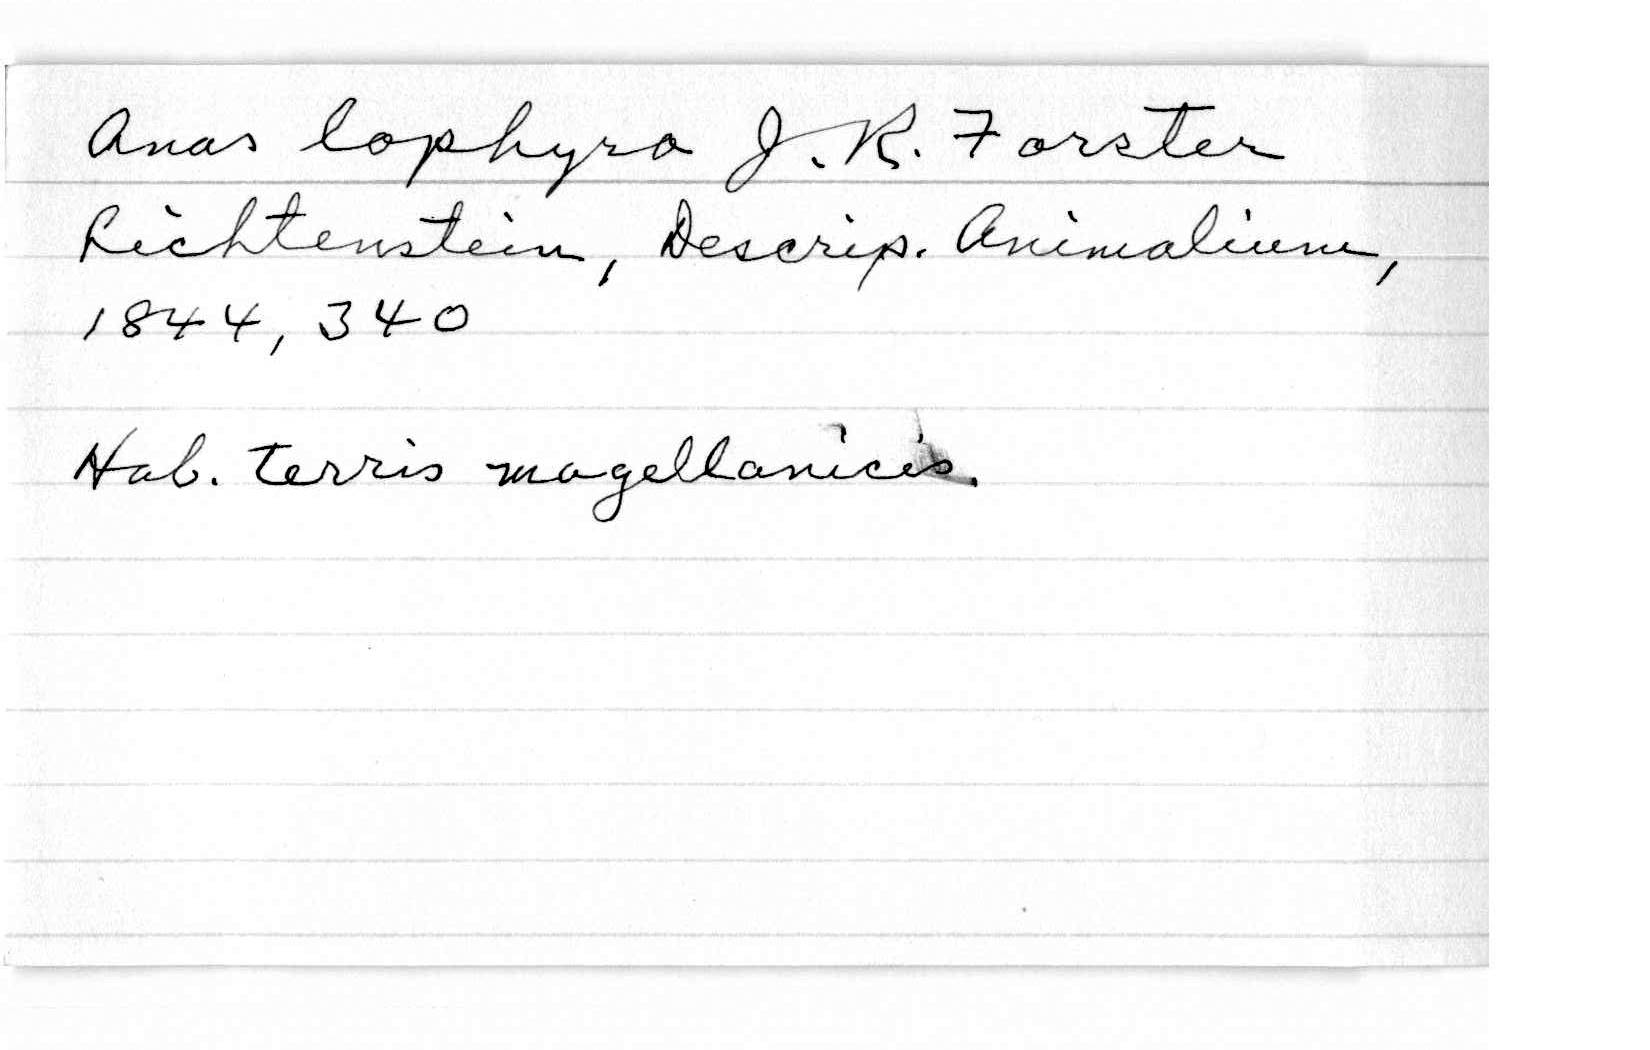 Anas lophyra J. R. Forster
Lichtenstein, Descrip. Animalium,
1844, 340
Hab. terris magellanicis.